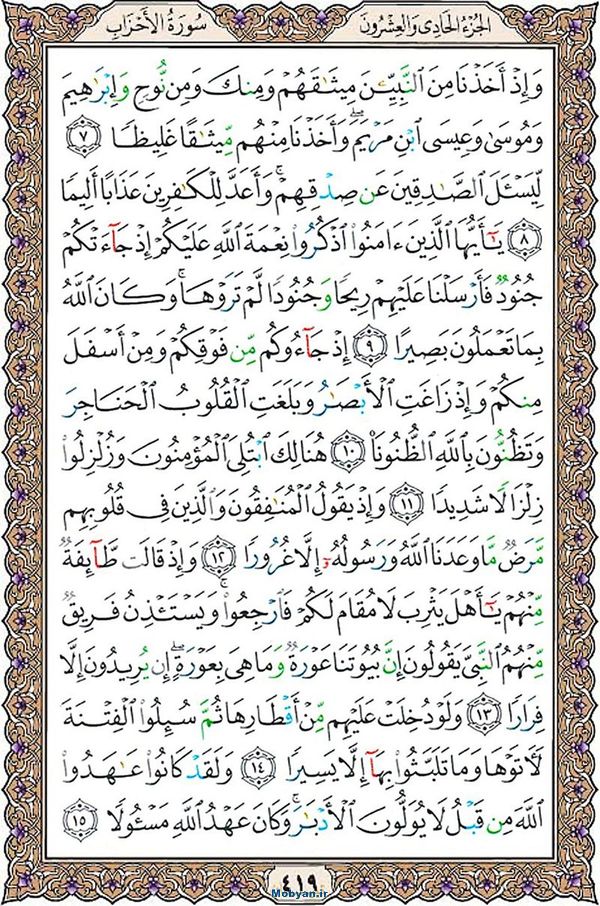 الجُزْءُ الحَادِي وَالعِشْرُونَ
سُورَةُ الأَحْزَابِ
وَإِذْ أَخَذْنَا مِنَ ٱلنَّبِيِّـۧنَ مِيثَٰقَهُمْ وَمِنكَ وَمِن نُّوحٍ وَإِبْرَٰهِيمَ
وَمُوسَىٰ وَعِيسَى ٱبْنِ مَرْيَمَۖ وَأَخَذْنَا مِنْهُم مِّيثَٰقًا غَلِيظًا ٧
لِّيَسْـَٔلَ ٱلصَّٰدِقِينَ عَن صِدْقِهِمْۚ وَأَعَدَّ لِلْكَٰفِرِينَ عَذَابًا أَلِيمًا
٨ يَٰٓأَيُّهَا ٱلَّذِينَ ءَامَنُوا۟ ٱذْكُرُوا۟ نِعْمَةَ ٱللَّهِ عَلَيْكُمْ إِذْ جَآءَتْكُمْ
جُنُودٌ فَأَرْسَلْنَا عَلَيْهِمْ رِيحًا وَجُنُودًا لَّمْ تَرَوْهَاۚ وَكَانَ ٱللَّهُ
بِمَا تَعْمَلُونَ بَصِيرًا ٩ إِذْ جَآءُوكُم مِّن فَوْقِكُمْ وَمِنْ أَسْفَلَ
مِنكُمْ وَإِذْ زَاغَتِ ٱلْأَبْصَٰرُ وَبَلَغَتِ ٱلْقُلُوبُ ٱلْحَنَاجِرَ
وَتَظُنُّونَ بِٱللَّهِ ٱلظُّنُونَا۠ ١٠ هُنَالِكَ ٱبْتُلِىَ ٱلْمُؤْمِنُونَ وَزُلْزِلُوا۟
زِلْزَالًا شَدِيدًا ١١ وَإِذْ يَقُولُ ٱلْمُنَٰفِقُونَ وَٱلَّذِينَ فِى قُلُوبِهِم
مَّرَضٌ مَّا وَعَدَنَا ٱللَّهُ وَرَسُولُهُۥٓ إِلَّا غُرُورًا ١٢ وَإِذْ قَالَت طَّآئِفَةٌ
مِّنْهُمْ يَٰٓأَهْلَ يَثْرِبَ لَا مُقَامَ لَكُمْ فَٱرْجِعُوا۟ۚ وَيَسْتَـْٔذِنُ فَرِيقٌ
مِّنْهُمُ ٱلنَّبِىَّ يَقُولُونَ إِنَّ بُيُوتَنَا عَوْرَةٌ وَمَا هِىَ بِعَوْرَةٍۖ إِن يُرِيدُونَ إِلَّا
فِرَارًا ١٣ وَلَوْ دُخِلَتْ عَلَيْهِم مِّنْ أَقْطَارِهَا ثُمَّ سُئِلُوا۟ ٱلْفِتْنَةَ
لَـَٔاتَوْهَا وَمَا تَلَبَّثُوا۟ بِهَآ إِلَّا يَسِيرًا ١٤ وَلَقَدْ كَانُوا۟ عَٰهَدُوا۟
ٱللَّهَ مِن قَبْلُ لَا يُوَلُّونَ ٱلْأَدْبَٰرَۚ وَكَانَ عَهْدُ ٱللَّهِ مَسْـُٔولًا ١٥
٤١٩
Mobyan.ir